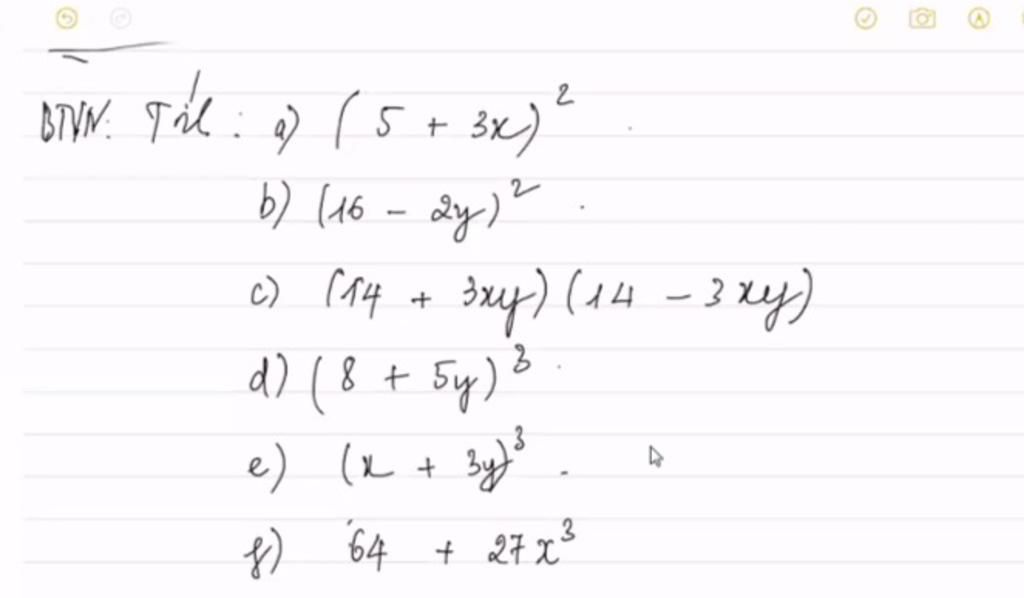 BTVN: Tính: a) (5 + 3x)²
b) (16 - 2y)²
c) (14 + 3xy)(14 - 3xy)
d) (8 + 5y)³
e) (x + 3y)³
f) 64 + 27x³